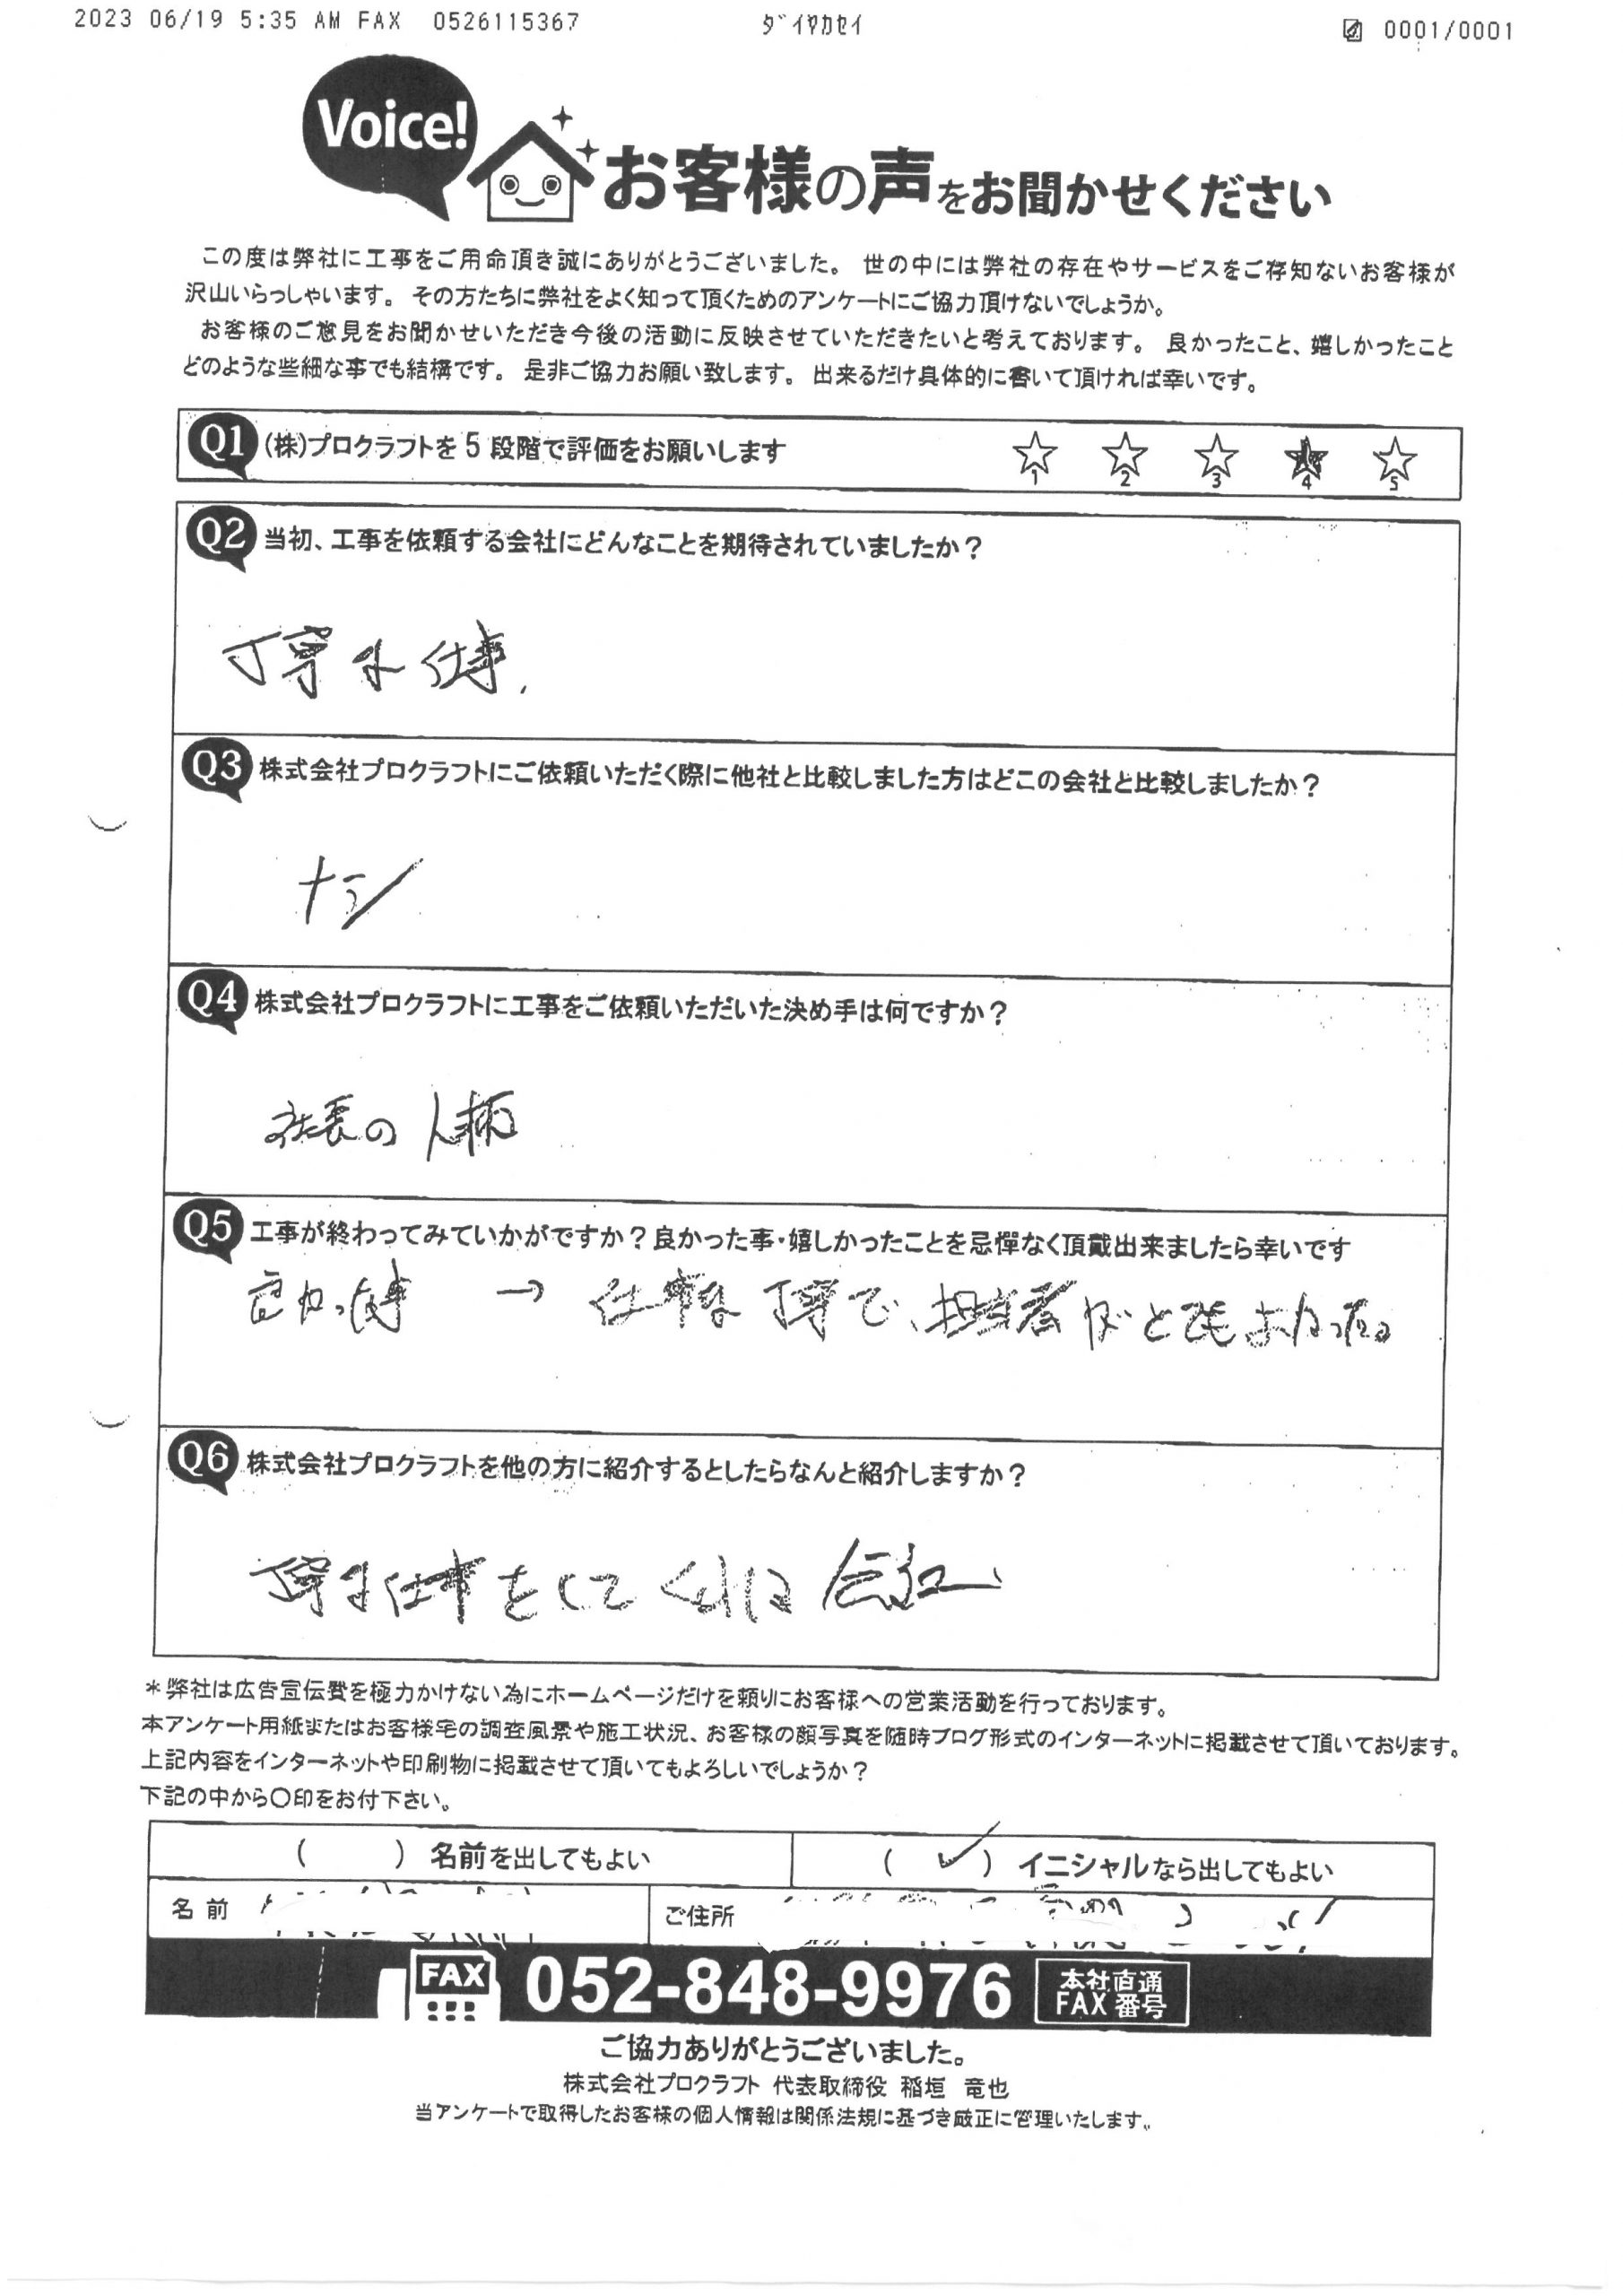 2023 06/19 5:35 AM FAX 0526115367 ﾀﾞｲﾔｶｾｲ 0001/0001
Voice!
お客様の声をお聞かせください
この度は弊社に工事をご用命頂き誠にありがとうございました。 世の中には弊社の存在やサービスをご存知ないお客様が
沢山いらっしゃいます。 その方たちに弊社をよく知って頂くためのアンケートにご協力頂けないでしょうか。
お客様のご意見をお聞かせいただき今後の活動に反映させていただきたいと考えております。 良かったこと、嬉しかったこと
どのような些細な事でも結構です。 是非ご協力お願い致します。 出来るだけ具体的に書いて頂ければ幸いです。
Q1 (株)プロクラフトを5段階で評価をお願いします 1 2 3 4 5
Q2 当初、工事を依頼する会社にどんなことを期待されていましたか?
丁寧な仕事.
Q3 株式会社プロクラフトにご依頼いただく際に他社と比較しました方はどこの会社と比較しましたか?
ナシ
Q4 株式会社プロクラフトに工事をご依頼いただいた決め手は何ですか?
社長の人柄
Q5 工事が終わってみていかがですか?良かった事・嬉しかったことを忌憚なく頂戴出来ましたら幸いです
良かった事 → 仕事が丁寧で、担当者がとてもよかった。
Q6 株式会社プロクラフトを他の方に紹介するとしたらなんと紹介しますか?
丁寧な仕事をしてくれる会社
*弊社は広告宣伝費を極力かけない為にホームページだけを頼りにお客様への営業活動を行っております。
本アンケート用紙またはお客様宅の調査風景や施工状況、お客様の顔写真を随時ブログ形式のインターネットに掲載させて頂いております。
上記内容をインターネットや印刷物に掲載させて頂いてもよろしいでしょうか?
下記の中から〇印をお付下さい。
( ) 名前を出してもよい (✓) イニシャルなら出してもよい
名前 ご住所
FAX 052-848-9976 本社直通
FAX番号
ご協力ありがとうございました。
株式会社プロクラフト 代表取締役 稲垣 竜也
当アンケートで取得したお客様の個人情報は関係法規に基づき厳正に管理いたします。